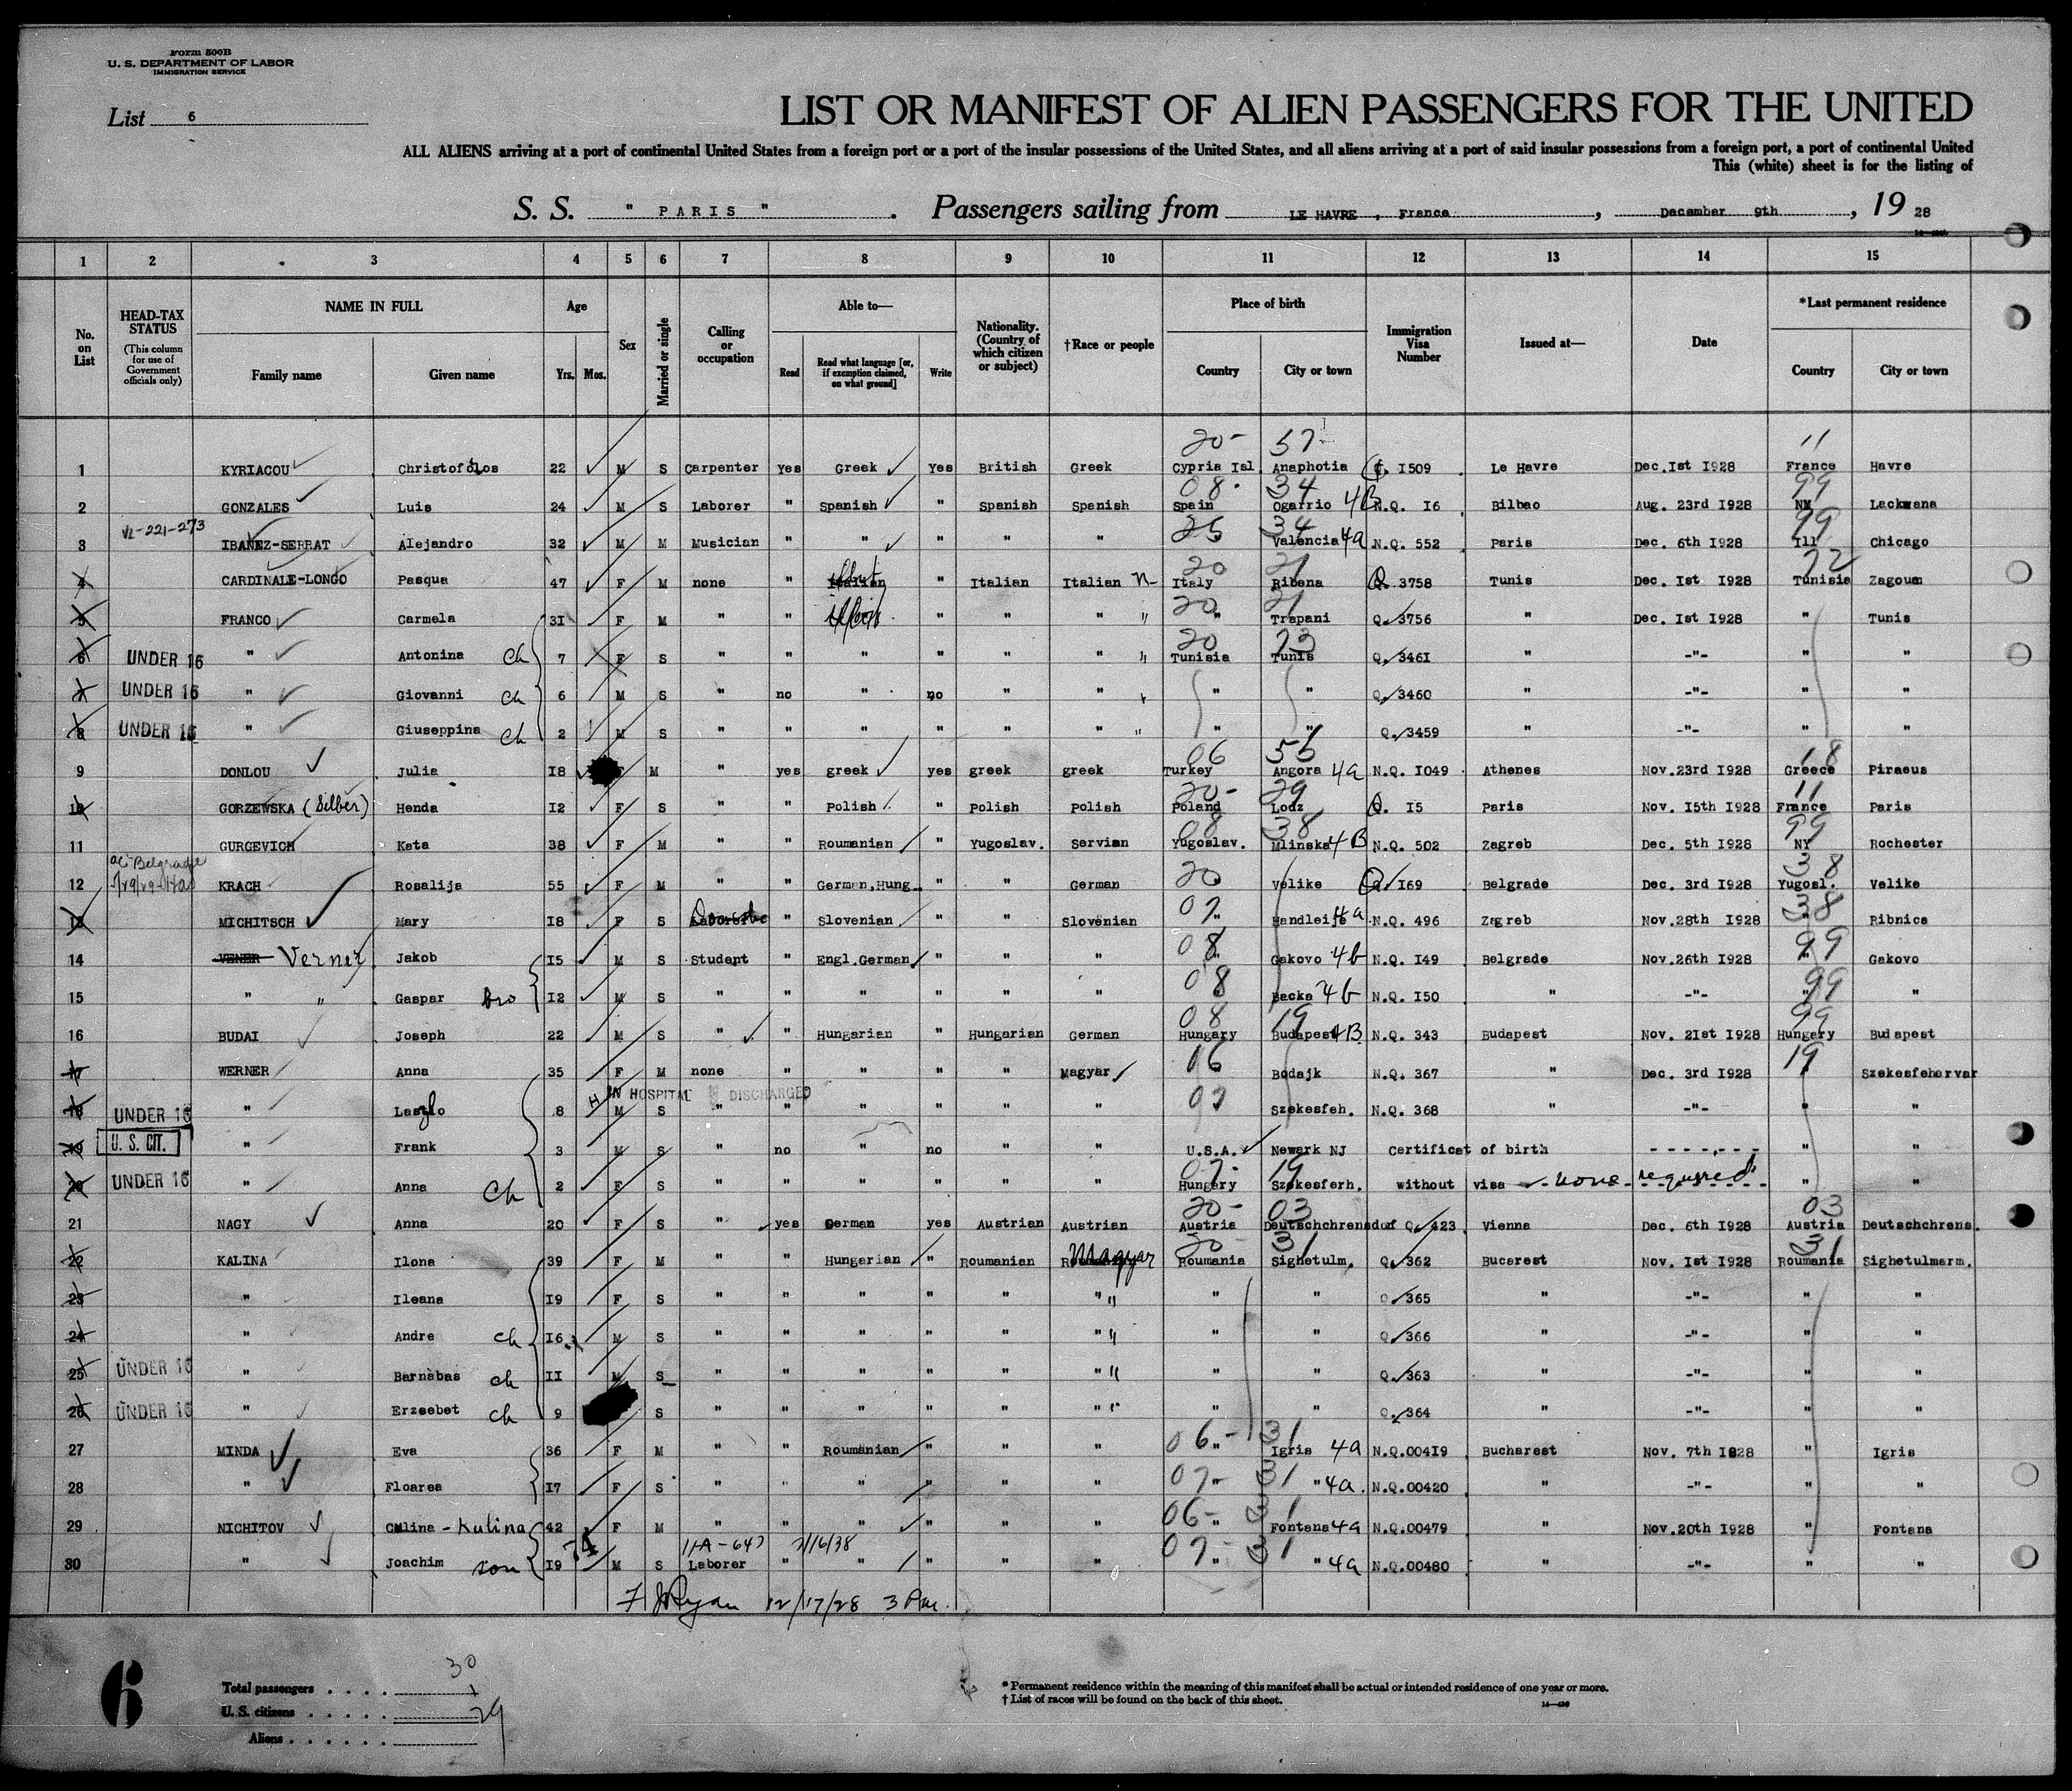 Form 500B
U. S. DEPARTMENT OF LABOR
IMMIGRATION SERVICE
List 6
LIST OR MANIFEST OF ALIEN PASSENGERS FOR THE UNITED
ALL ALIENS arriving at a port of continental United States from a foreign port or a port of the insular possessions of the United States, and all aliens arriving at a port of said insular possessions from a foreign port, a port of continental United
This (white) sheet is for the listing of
S. S. " PARIS " . Passengers sailing from LE HAVRE , France , December 9th , 19 28
1 2 3 4 5 6 7 8 9 10 11 12 13 14 15
No. on List
HEAD-TAX STATUS (This column for use of Government officials only)
NAME IN FULL Family name Given name
Age Yrs. Mos.
Sex
Married or single
Calling or occupation
Able to— Read Read what language [or, if exemption claimed, on what ground] Write
Nationality. (Country of which citizen or subject)
†Race or people
Place of birth Country City or town
Immigration Visa Number
Issued at—
Date
*Last permanent residence Country City or town
20- 57- 11
1 KYRIACOU Christofolos 22 M S Carpenter Yes Greek Yes British Greek Cypria Isl. Anaphotia Q. I509 Le Havre Dec.Ist I928 France Havre
08 34 99
2 GONZALES Luis 24 M S Laborer " Spanish " Spanish Spanish Spain Ogarrio 4B N.Q. I6 Bilbao Aug. 23rd I928 NY Lackwana
VL-221-273 25 34 99
3 IBANEZ-SERRAT Alejandro 32 M M Musician " " " " " Valencia 4a N.Q. 552 Paris Dec. 6th I928 Ill Chicago
20 21 72
4 CARDINALE-LONGO Pasqua 47 F M none " Italian " Italian Italian n- Italy Ribena Q. 3758 Tunis Dec. Ist I928 Tunisia Zagoum
20 21
5 FRANCO Carmela 3I F M " " " " " " " Trapani Q. 3756 " Dec. Ist I928 " Tunis
20 73
6 UNDER 16 " Antonina ch 7 F S " " " " " " " Tunisia Tunis Q. 346I " -"- " "
7 UNDER 16 " Giovanni ch 6 M S " no " no " " " " Q. 3460 " -"- " "
8 UNDER 16 " Giuseppina ch 2 M S " " " " " " " " " Q. 3459 " -"- " "
06 55 18
9 DONLOU Julia I8 M " yes greek yes greek greek Turkey Angora 4a N.Q. I049 Athenes Nov.23rd I928 Greece Piraeus
20- 29 11
10 GORZEWSKA (Silber) Henda I2 F S " " Polish " Polish Polish Poland Lodz Q. I5 Paris Nov. I5th I928 France Paris
08 38 99
11 GURGEVICH Kata 38 F M " " Roumanian " Yugoslav. Servian Yugoslav. Mlinska 4B N.Q. 502 Zagreb Dec. 5th I928 NY Rochester
Belgrade 20 38
12 KRACH Rosalija 55 F M " " German,Hung. " " German Velike Q. I69 Belgrade Dec. 3rd I928 Yugosl. Velike
07 38
13 MICHITSCH Mary I8 F S Domestic " Slovenian " " Slovenian " Handleifte 4a N.Q. 496 Zagreb Nov.28th I928 " Ribnica
08 99
14 VENER Verner Jakob I5 M S Student " Engl.German " " " " Gakovo 4b N.Q. I49 Belgrade Nov.26th I928 " Gakovo
08 99
15 " " Gaspar bro I2 M S " " " " " " Backa 4b N.Q. I50 " -"- " "
08 19 99
16 BUDAI Joseph 22 M S " " Hungarian " Hungarian German Hungary Budapest 4B N.Q. 343 Budapest Nov. 2Ist I928 Hungary Budapest
06 19
17 WERNER Anna 35 F M none " " " " Magyar Bodajk N.Q. 367 " Dec. 3rd I928 " Szekesfehervar
H IN HOSPITAL DISCHARGED
07
18 UNDER 16 " Laszlo 8 M S " " " " " " Szekesfeh. N.Q. 368 " -"- " "
19 U. S. CIT. " Frank 3 M S " no " no " " U.S.A. Newark NJ Certificat of birth - - - - - - " "
07- 19
20 UNDER 16 " Anna Ch 2 F S " " " " " " Hungary Szekesferh. without visa - none required " "
20- 03 03
21 NAGY Anna 20 F S " yes German yes Austrian Austrian Austria Deutschchrensdorf Q. 423 Vienna Dec. 6th I928 Austria Deutschchrens.
20- 31 31
22 KALINA Ilona 39 F M " " Hungarian " Roumanian Magyar Roumania Sighetulm. Q. 362 Bucarest Nov. Ist I928 Roumania Sighetulmarm.
23 " Ileana I9 F S " " " " " " " " " Q. 365 " -"- " "
24 " Andre ch I6 M S " " " " " " " " " Q. 366 " -"- " "
25 UNDER 16 " Barnabas ch II M S " " " " " " " " " Q. 363 " -"- " "
26 UNDER 16 " Erzsebet ch 9 S " " " " " " " " " Q. 364 " -"- " "
06- 31
27 MINDA Eva 36 F M " " Roumanian " " " " Igris 4a N.Q.004I9 Bucharest Nov. 7th I928 " Igris
07- 31
28 " Floarea I7 F S " " " " " " " " 4a. N.Q.00420 " -"- " "
06- 31
29 NICHITOV Culina - Kulina 42 F M " " " " " " " Fontana 4a N.Q.00479 " Nov.20th I928 " Fontana
74 11A-647 2/16/38 07- 31
30 " Joachim son I9 M S Laborer " " " " " " " 4a N.Q.00480 -"- " "
F J Ryan 12/17/28 3 P.M.
6
Total passengers . . . . 30
U. S. citizens . . . . . 1
Aliens . . . . . . 29
* Permanent residence within the meaning of this manifest shall be actual or intended residence of one year or more.
† List of races will be found on the back of this sheet.